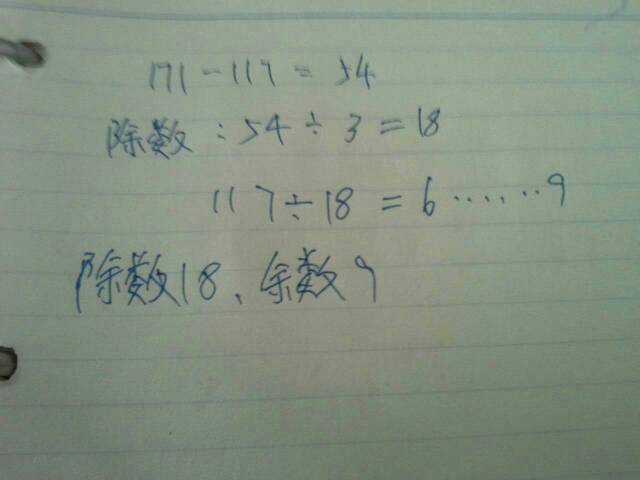 171-117=54
除数:54÷3=18
117÷18=6……9
除数18、余数9